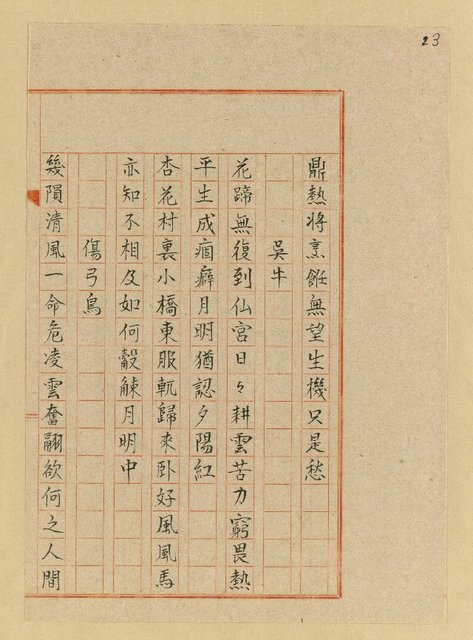 23
鼎熱将烹餁無望生機只是愁
吳牛
花蹄無復到仙宮日々耕雲苦力窮畏熱
平生成痼癖月明猶認夕陽紅
杏花村裏小橋東服軏歸來卧好風風馬
亦知不相及如何觳觫月明中
傷弓鳥
幾隕清風一命危凌雲奮翮欲何之人間